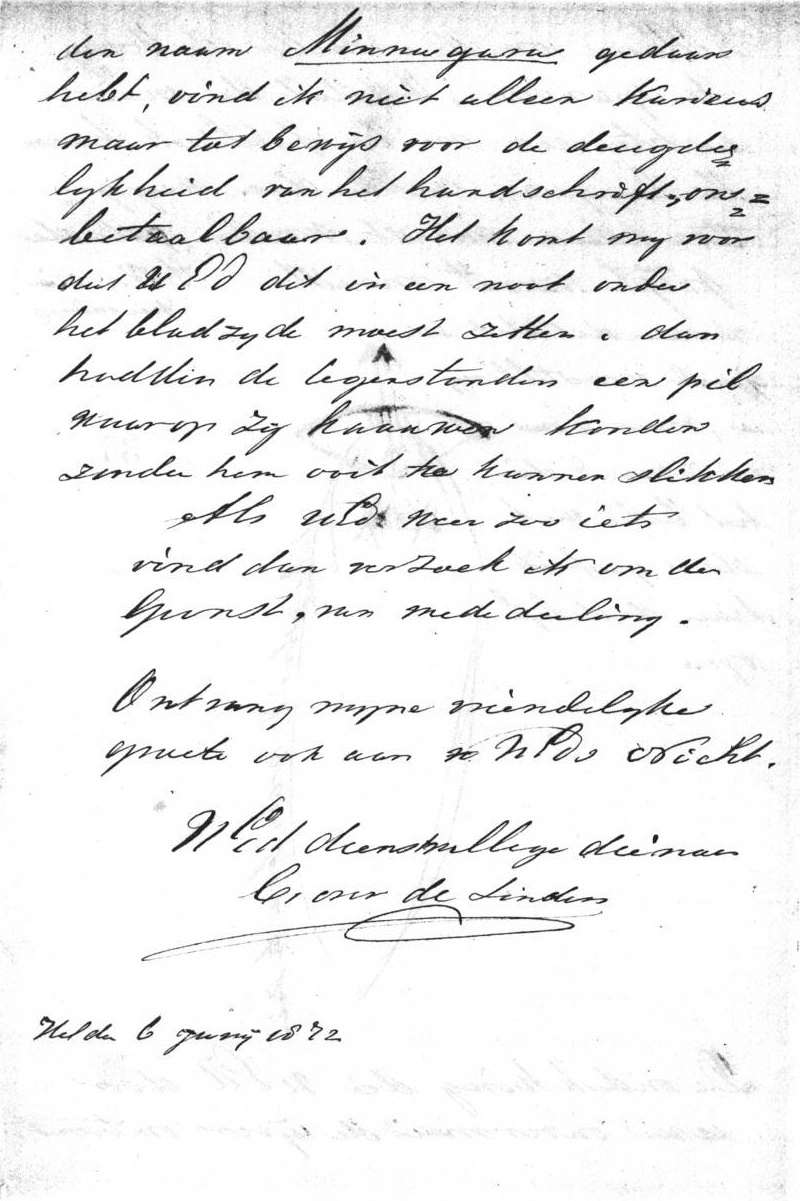 den naam Minnagara gedaan
hebt, vind ik niet alleen Kurieus
maar tot bewijs voor de deugde=
lykheid van het handschrift, on=
betaalbaar. Het komt my voor
dat UEd dit in een noot onder
het bladzyde moest zetten. dan
hadden de tegenstanders een pil
waarop zij kaauwen konden
zonder hem ooit te kunnen slikken
Als UEd. weer zoo iets
vind dan verzoek ik om de
Gunst, van mededeeling.
Ontvang myne vriendelyke
groete ook aan UEds Nicht.
UEd dienstwillige dienaar
C, over de Linden
Helder 6 Junij 1872